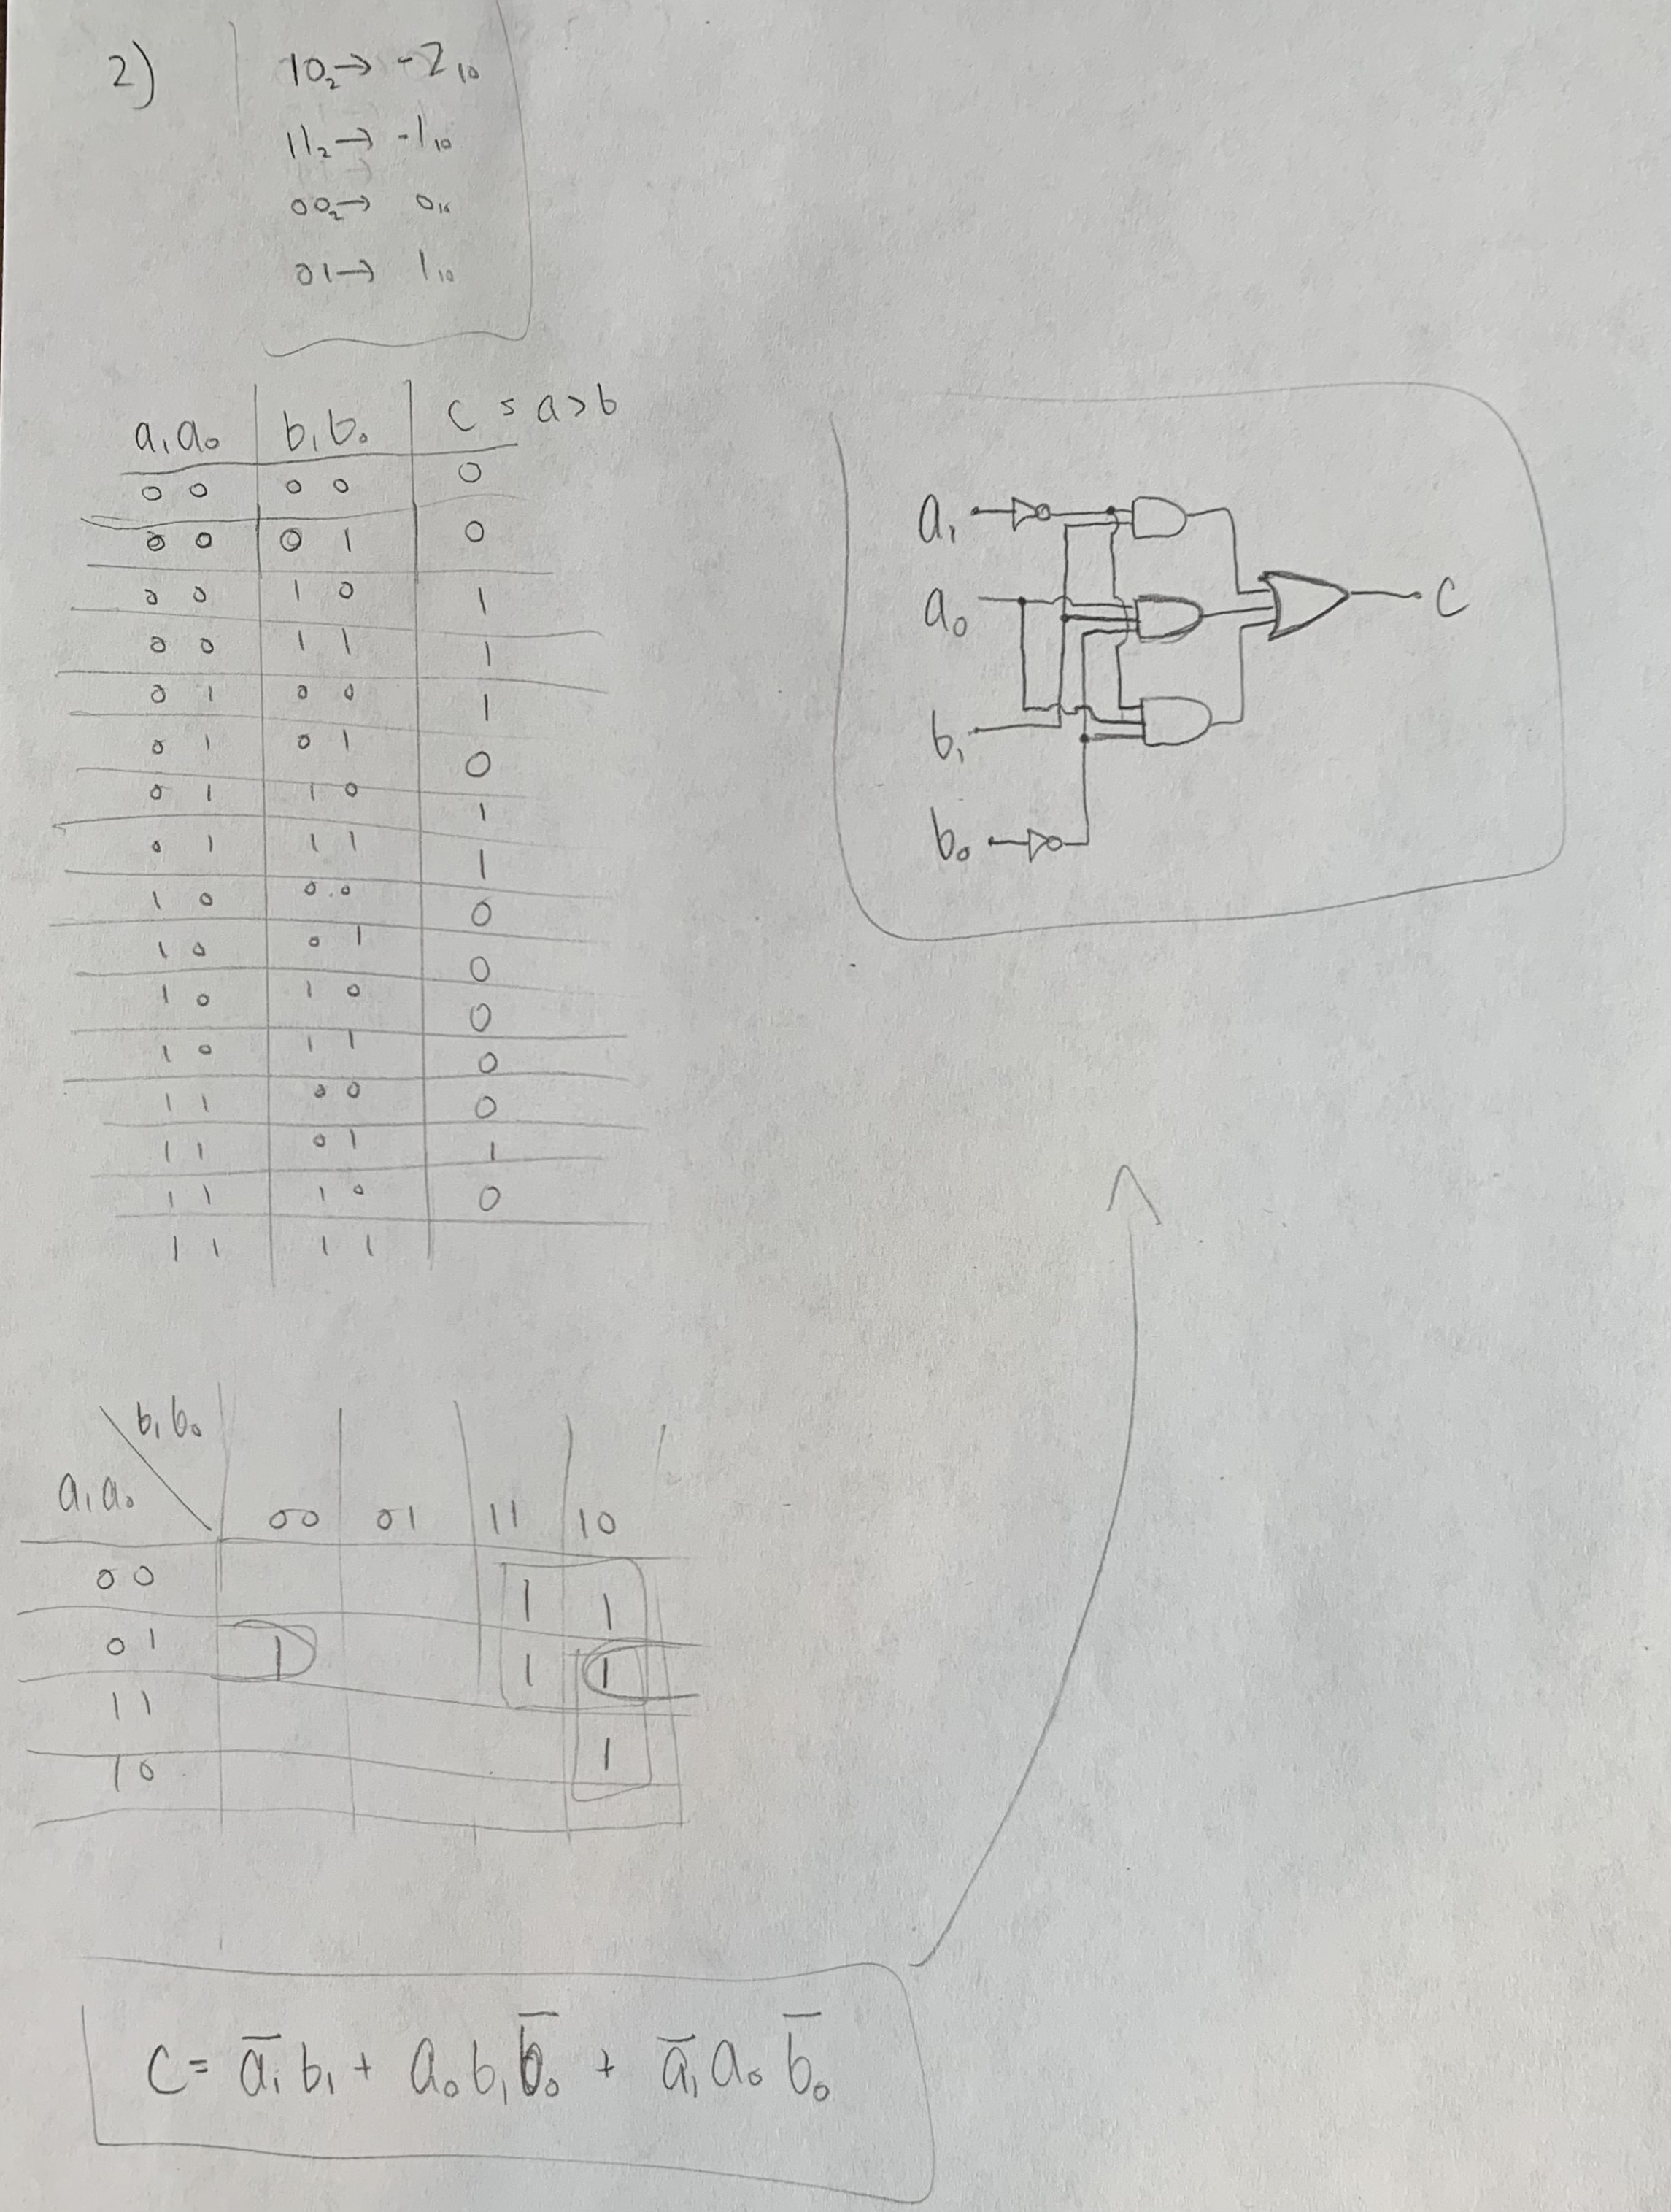 2)
10₂→ -2₁₀
11₂→ -1₁₀
00₂→ 0₁₀
01→ 1₁₀
a₁a₀ b₁b₀ C = a>b
00 00 0
00 01 0
00 10 1
00 11 1
01 00 1
01 01 0
01 10 1
01 11 1
10 00 0
10 01 0
10 10 0
10 11 0
11 00 0
11 01 1
11 10 0
11 11
a₁
a₀
b₁
b₀
C
b₁b₀
a₁a₀
00 01 11 10
00 1 1
01 1 1 1
11 1
10
C = a̅₁b₁ + a₀b₁b̅₀ + a̅₁a₀b̅₀